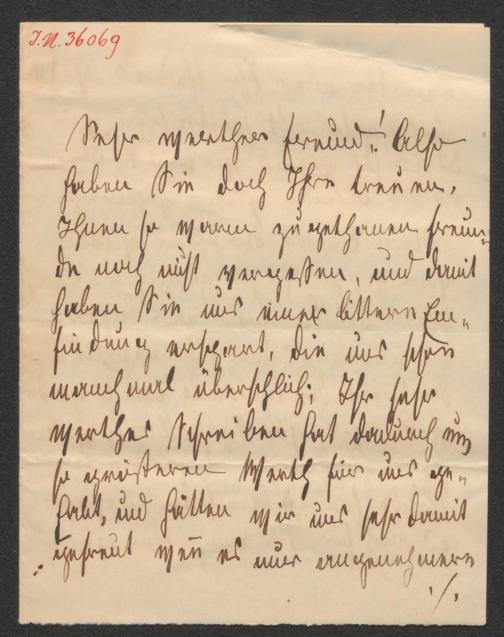 I.N. 36069
Sehr werther Freund! Also
haben Sie doch Ihre treuen,
Ihnen so warm zugethanen Freun-
de noch nicht vergessen, und damit
haben Sie uns einer bittern Em-
pfindung erspart, die uns schon
manchmal überschlich; Ihr sehr
werthes Schreiben hat dadurch um
so größeren Werth für uns ge-
habt, und hätten wir uns sehr damit
gefreut weñ es nur angenehmere
./.